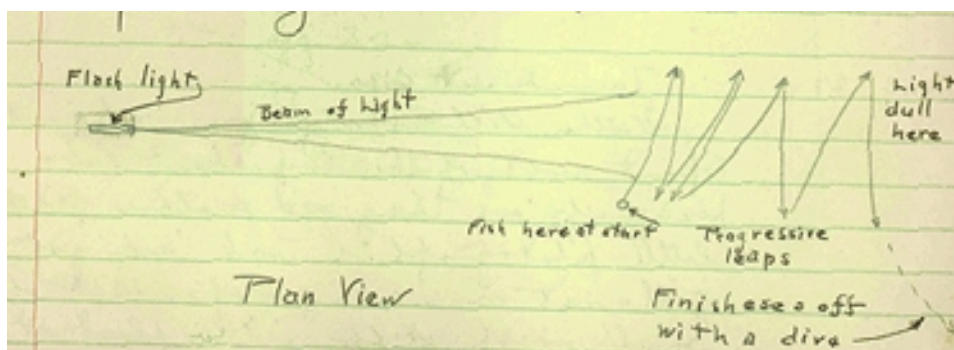 Flash light
Beam of Light
Light
dull
here
Fish here at start
Progressive
leaps
Plan View
Finisheses off
with a dive